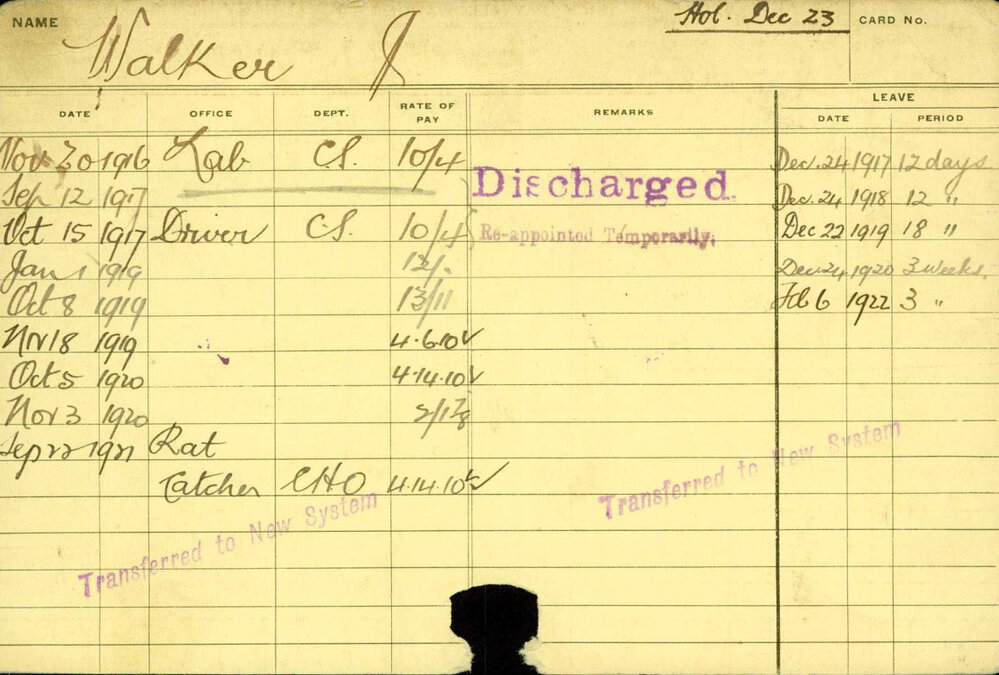 NAME Walker J Hol. Dec 23 CARD No.
DATE OFFICE DEPT. RATE OF PAY REMARKS LEAVE
DATE PERIOD
Nov 30 1916 Lab CS. 10/4 Dec. 24 1917 12 days
Sep 12 1917 Discharged. Dec. 24 1918 12 "
Oct 15 1917 Driver CS. 10/4 Re-appointed Temporarily. Dec 22 1919 18 "
Jan 1 1919 12/. Dec. 24 1920 3 weeks.
Oct 8 1919 13/11 Feb 6 1922 3 "
Nov 18 1919 4.6.10
Oct 5 1920 4.14.10
Nov 3 1920
Sep 22 1921 Rat
Catcher CHO 4.14.10
Transferred to New System
Transferred to New System